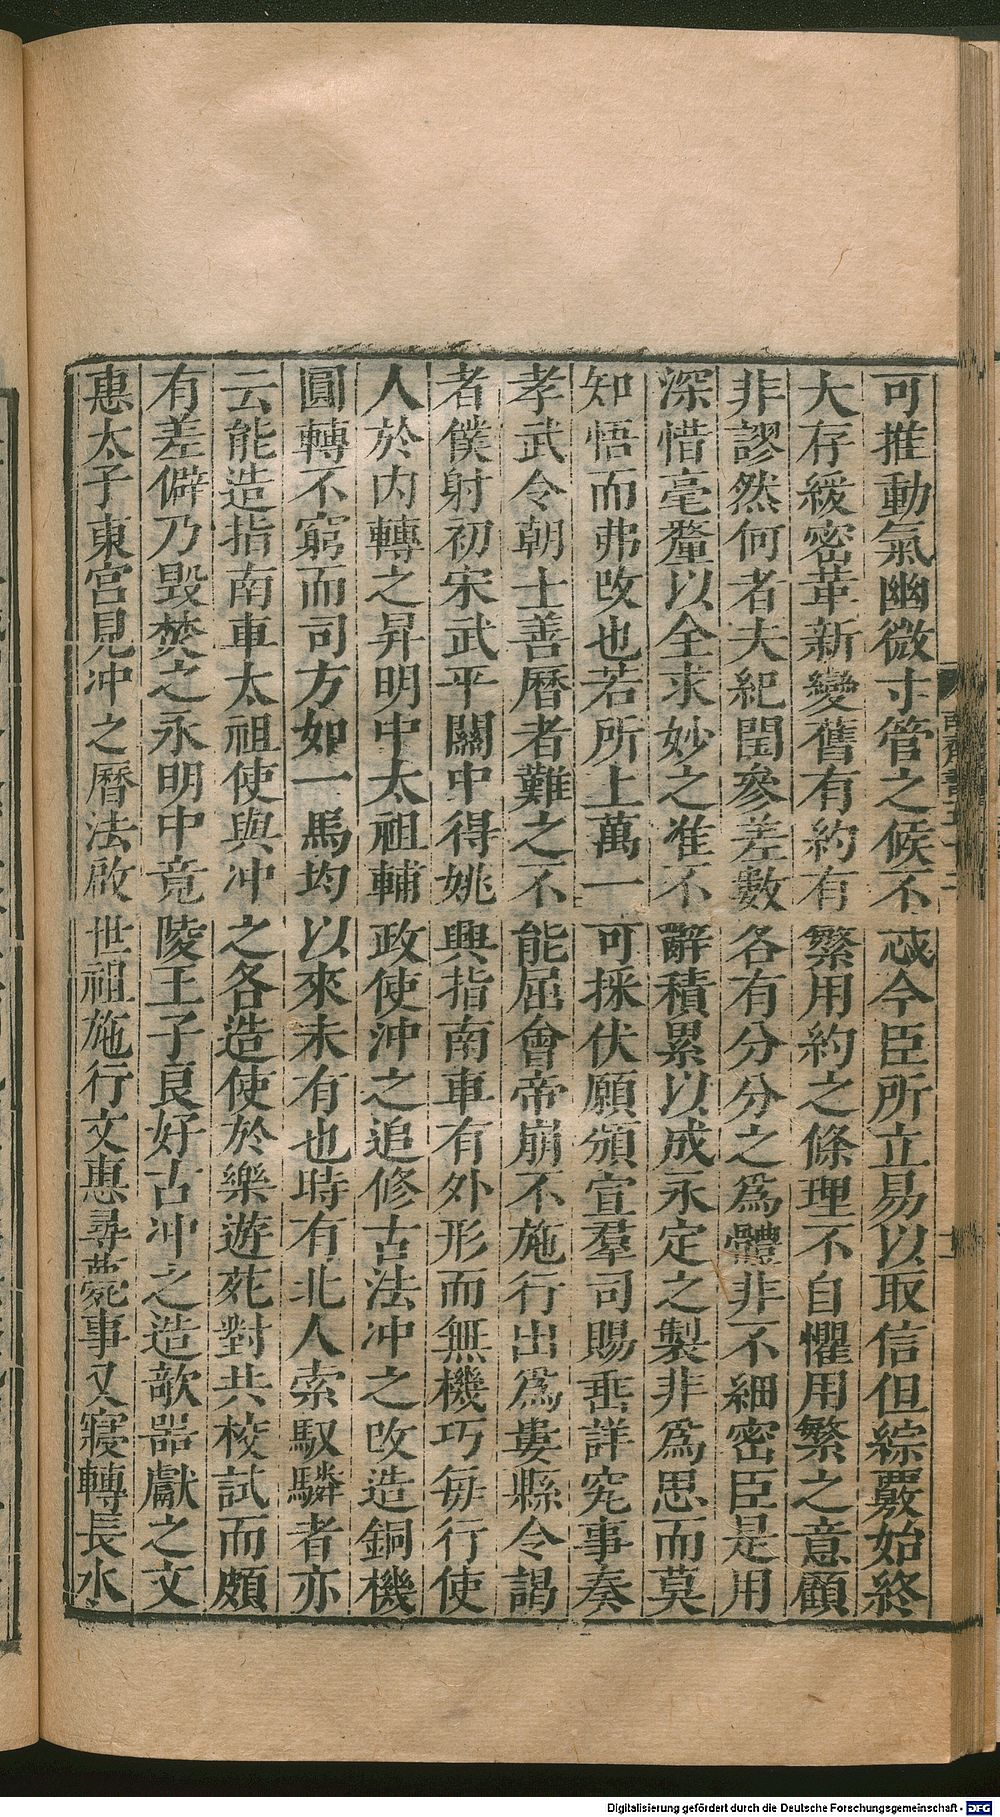 可推動氣幽微寸管之候不忒今臣所立易以取信但綜覈始終
大存緩密革新變舊有約有繁用約之條理不自懼用繁之意顧
非謬然何者夫紀閏參差數各有分分之爲體非不細密臣是用
深惜毫釐以全求妙之准不辭積累以成永定之製非爲思而莫
知悟而弗改也若所上萬一可採伏願頒宣羣司賜垂詳究事奏
孝武令朝士善曆者難之不能屈會帝崩不施行出爲婁縣令謁
者僕射初宋武平關中得姚興指南車有外形而無機巧每行使
人於內轉之昇明中太祖輔政使沖之追修古法沖之改造銅機
圓轉不窮而司方如一馬均以來未有也時有北人索馭驎者亦
云能造指南車太祖使與沖之各造使於樂遊苑對共校試而頗
有差僻乃毀焚之永明中竟陵王子良好古沖之造欹器獻之文
惠太子東宮見沖之曆法啟世祖施行文惠尋薨事又寢轉長水
Digitalisierung gefördert durch die Deutsche Forschungsgemeinschaft - DFG